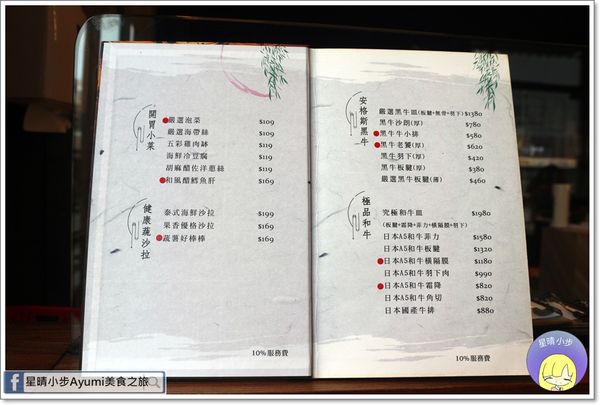 開胃小菜
嚴選泡菜 $109
嚴選海帶絲 $109
五彩雞肉缽 $119
海鮮冷豆腐 $119
胡麻醋佐洋蔥絲 $119
和風醋鱈魚肝 $169
健康蔬沙拉
泰式海鮮沙拉 $199
果香優格沙拉 $169
蔬薯好棒棒 $169
10%服務費
安格斯黑牛
嚴選黑牛皿(板腱+無骨+羽下) $1380
黑牛沙朗(厚) $780
黑牛牛小排 $580
黑牛老饕(厚) $620
黑牛羽下(厚) $420
黑牛板腱(厚) $380
嚴選黑牛板腱(薄) $460
極品和牛
究極和牛皿 $1980
(板腱+霜降+菲力+橫隔膜+羽下)
日本A5和牛菲力 $1580
日本A5和牛板腱 $1320
日本A5和牛橫隔膜 $1180
日本A5和牛羽下肉 $990
日本A5和牛霜降 $820
日本A5和牛角切 $820
日本國產牛排 $880
10%服務費
星晴小步
f 星晴小步Ayumi美食之旅